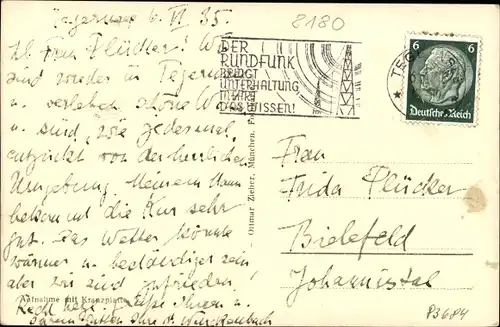 Tegernsee 6. VI 35.
Lb. Frau Plücker! Wir
sind wieder in Tegern
u. verleben schöne
u. sind, wie jedesmal,
entzückt von der herrlichen
Umgebung. Meinem Mann
bekommt die Kur sehr
gut. Das Wetter könnte
wärmer u. beständiger sein
aber wir sind zufrieden!
Recht herzl. Grüße Ihnen u.
Ihrem Gatten Ihre
Aufnahme mit Kranzplatte
Ottmar Zieher, München.
8180
DER
RUNDFUNK
BRINGT
UNTERHALTUNG
MEHRT
DAS WISSEN!
TEGERNSEE
6 6
Deutsches Reich
Frau
Frida Plücker
Bielefeld
Johannistal
P3684